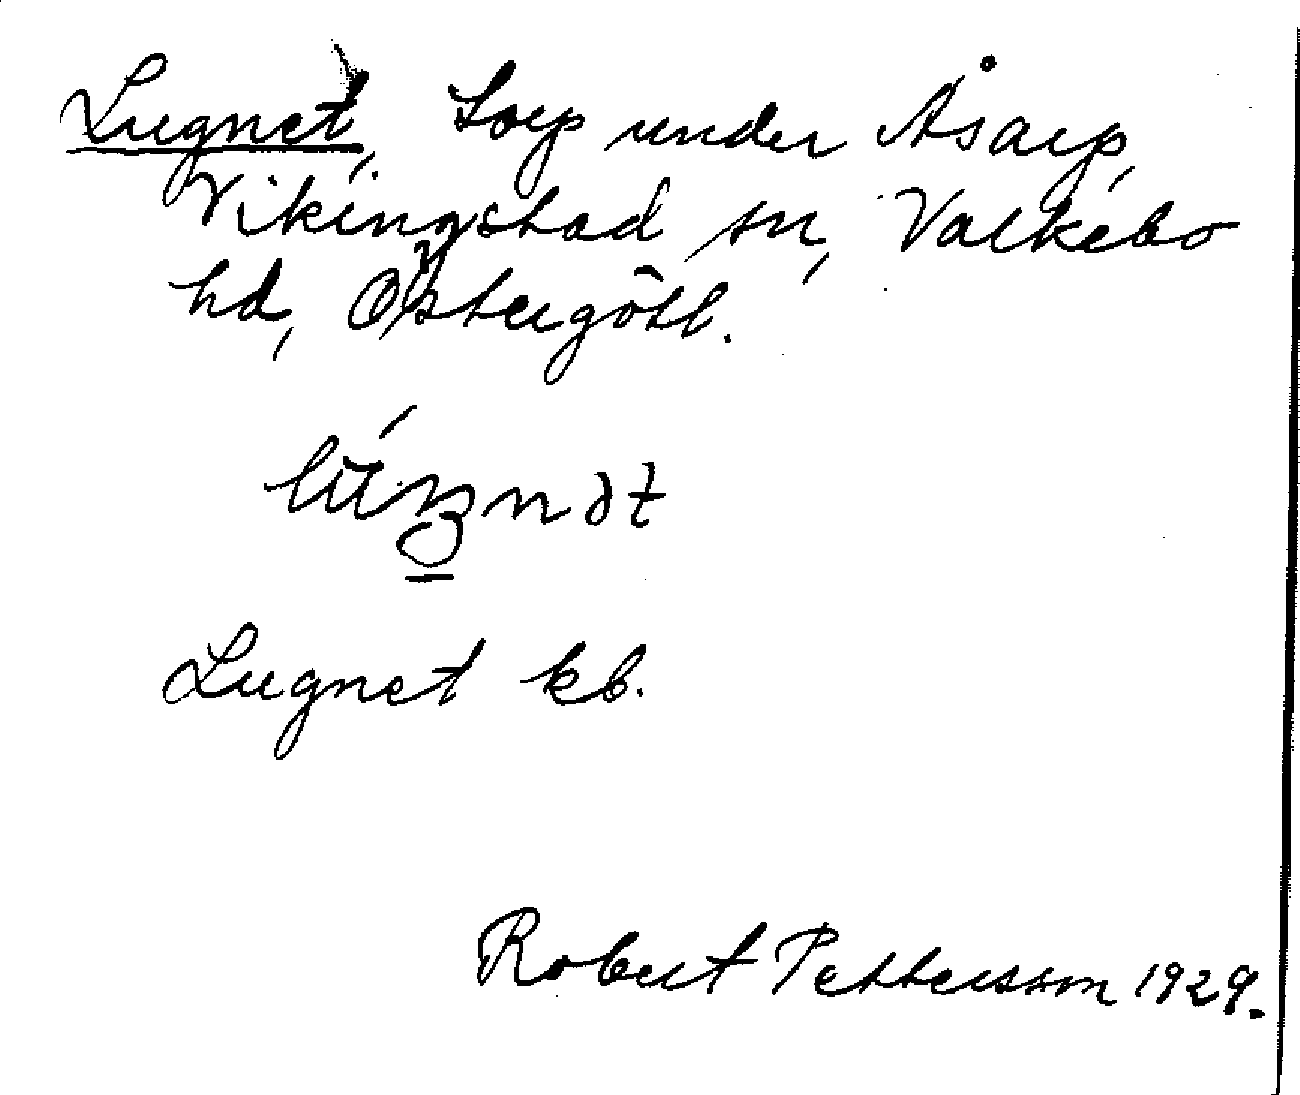 Lugnet, torp under Åsarp,
Vikingstad sn, Valkebo
hd, Östergötl.
Lugnet kb.
Robert Pettersson 1929.